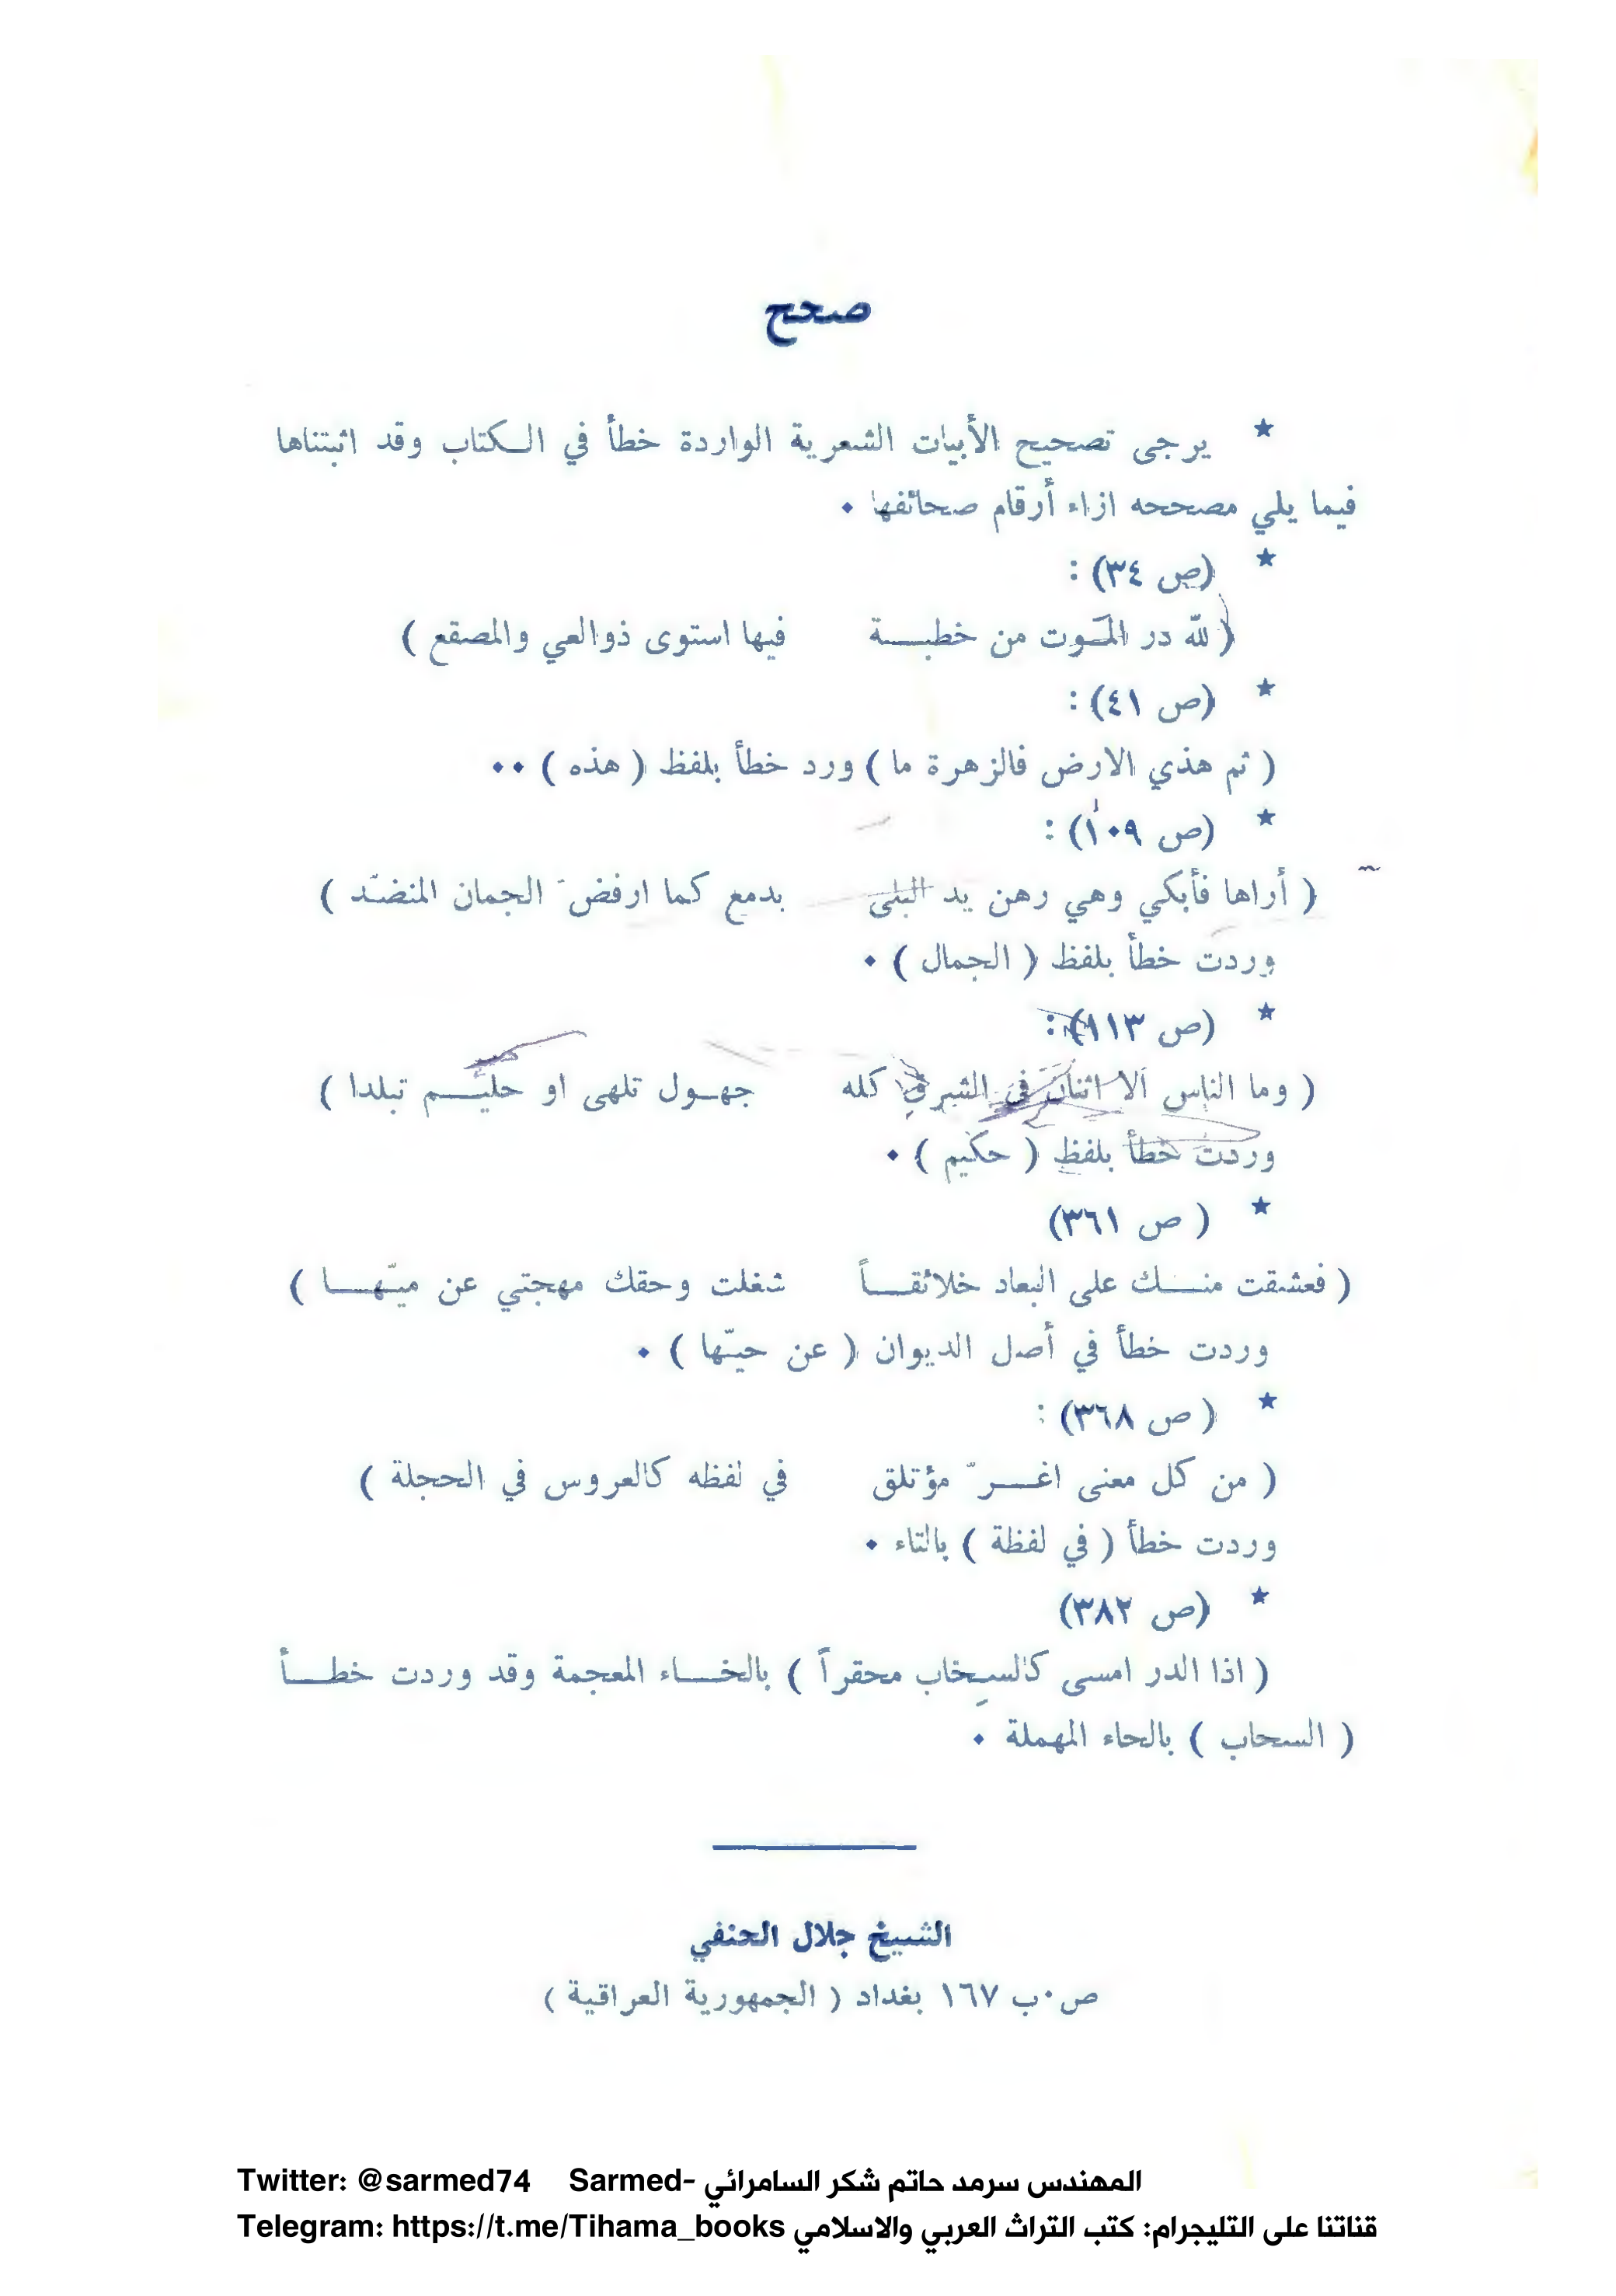 صحح
★ يرجى تصحيح الأبيات الشعرية الواردة خطأ في الكتاب وقد اثبتناها
فيما يلي مصححه ازاء أرقام صحائفها .
★ (ص ٣٤) :
( لله در الموت من خطبة فيها استوى ذوالعي والمصقع )
★ (ص ٤١) :
( ثم هذي الارض فالزهرة ما ) ورد خطأ بلفظ ( هذه ) ..
★ (ص ١٠٩) :
( أراها فأبكي وهي رهن يد البلى بدمع كما ارفضّ الجمان المنضّد )
وردت خطأ بلفظ ( الجمال ) .
★ (ص ١١٣) :
( وما الناس الا اثنان في الشرق كله جهول تلهى او حليم تبلدا )
وردت خطأ بلفظ ( حكيم ) .
★ ( ص ٣٦١)
( فعشقت منك على البعاد خلائقاً شغلت وحقك مهجتي عن ميّها )
وردت خطأ في أصل الديوان ( عن حيّها ) .
★ ( ص ٣٦٨) :
( من كل معنى اغرّ مؤتلق في لفظه كالعروس في الحجلة )
وردت خطأ ( في لفظة ) بالتاء .
★ (ص ٣٨٢)
( اذا الدر امسى كالسِخاب محقراً ) بالخاء المعجمة وقد وردت خطأ
( السحاب ) بالحاء المهملة .
الشيخ جلال الحنفي
ص.ب ١٦٧ بغداد ( الجمهورية العراقية )
Twitter: @sarmed74 Sarmed- المهندس سرمد حاتم شكر السامرائي
Telegram: https://t.me/Tihama_books قناتنا على التليجرام: كتب التراث العربي والاسلامي